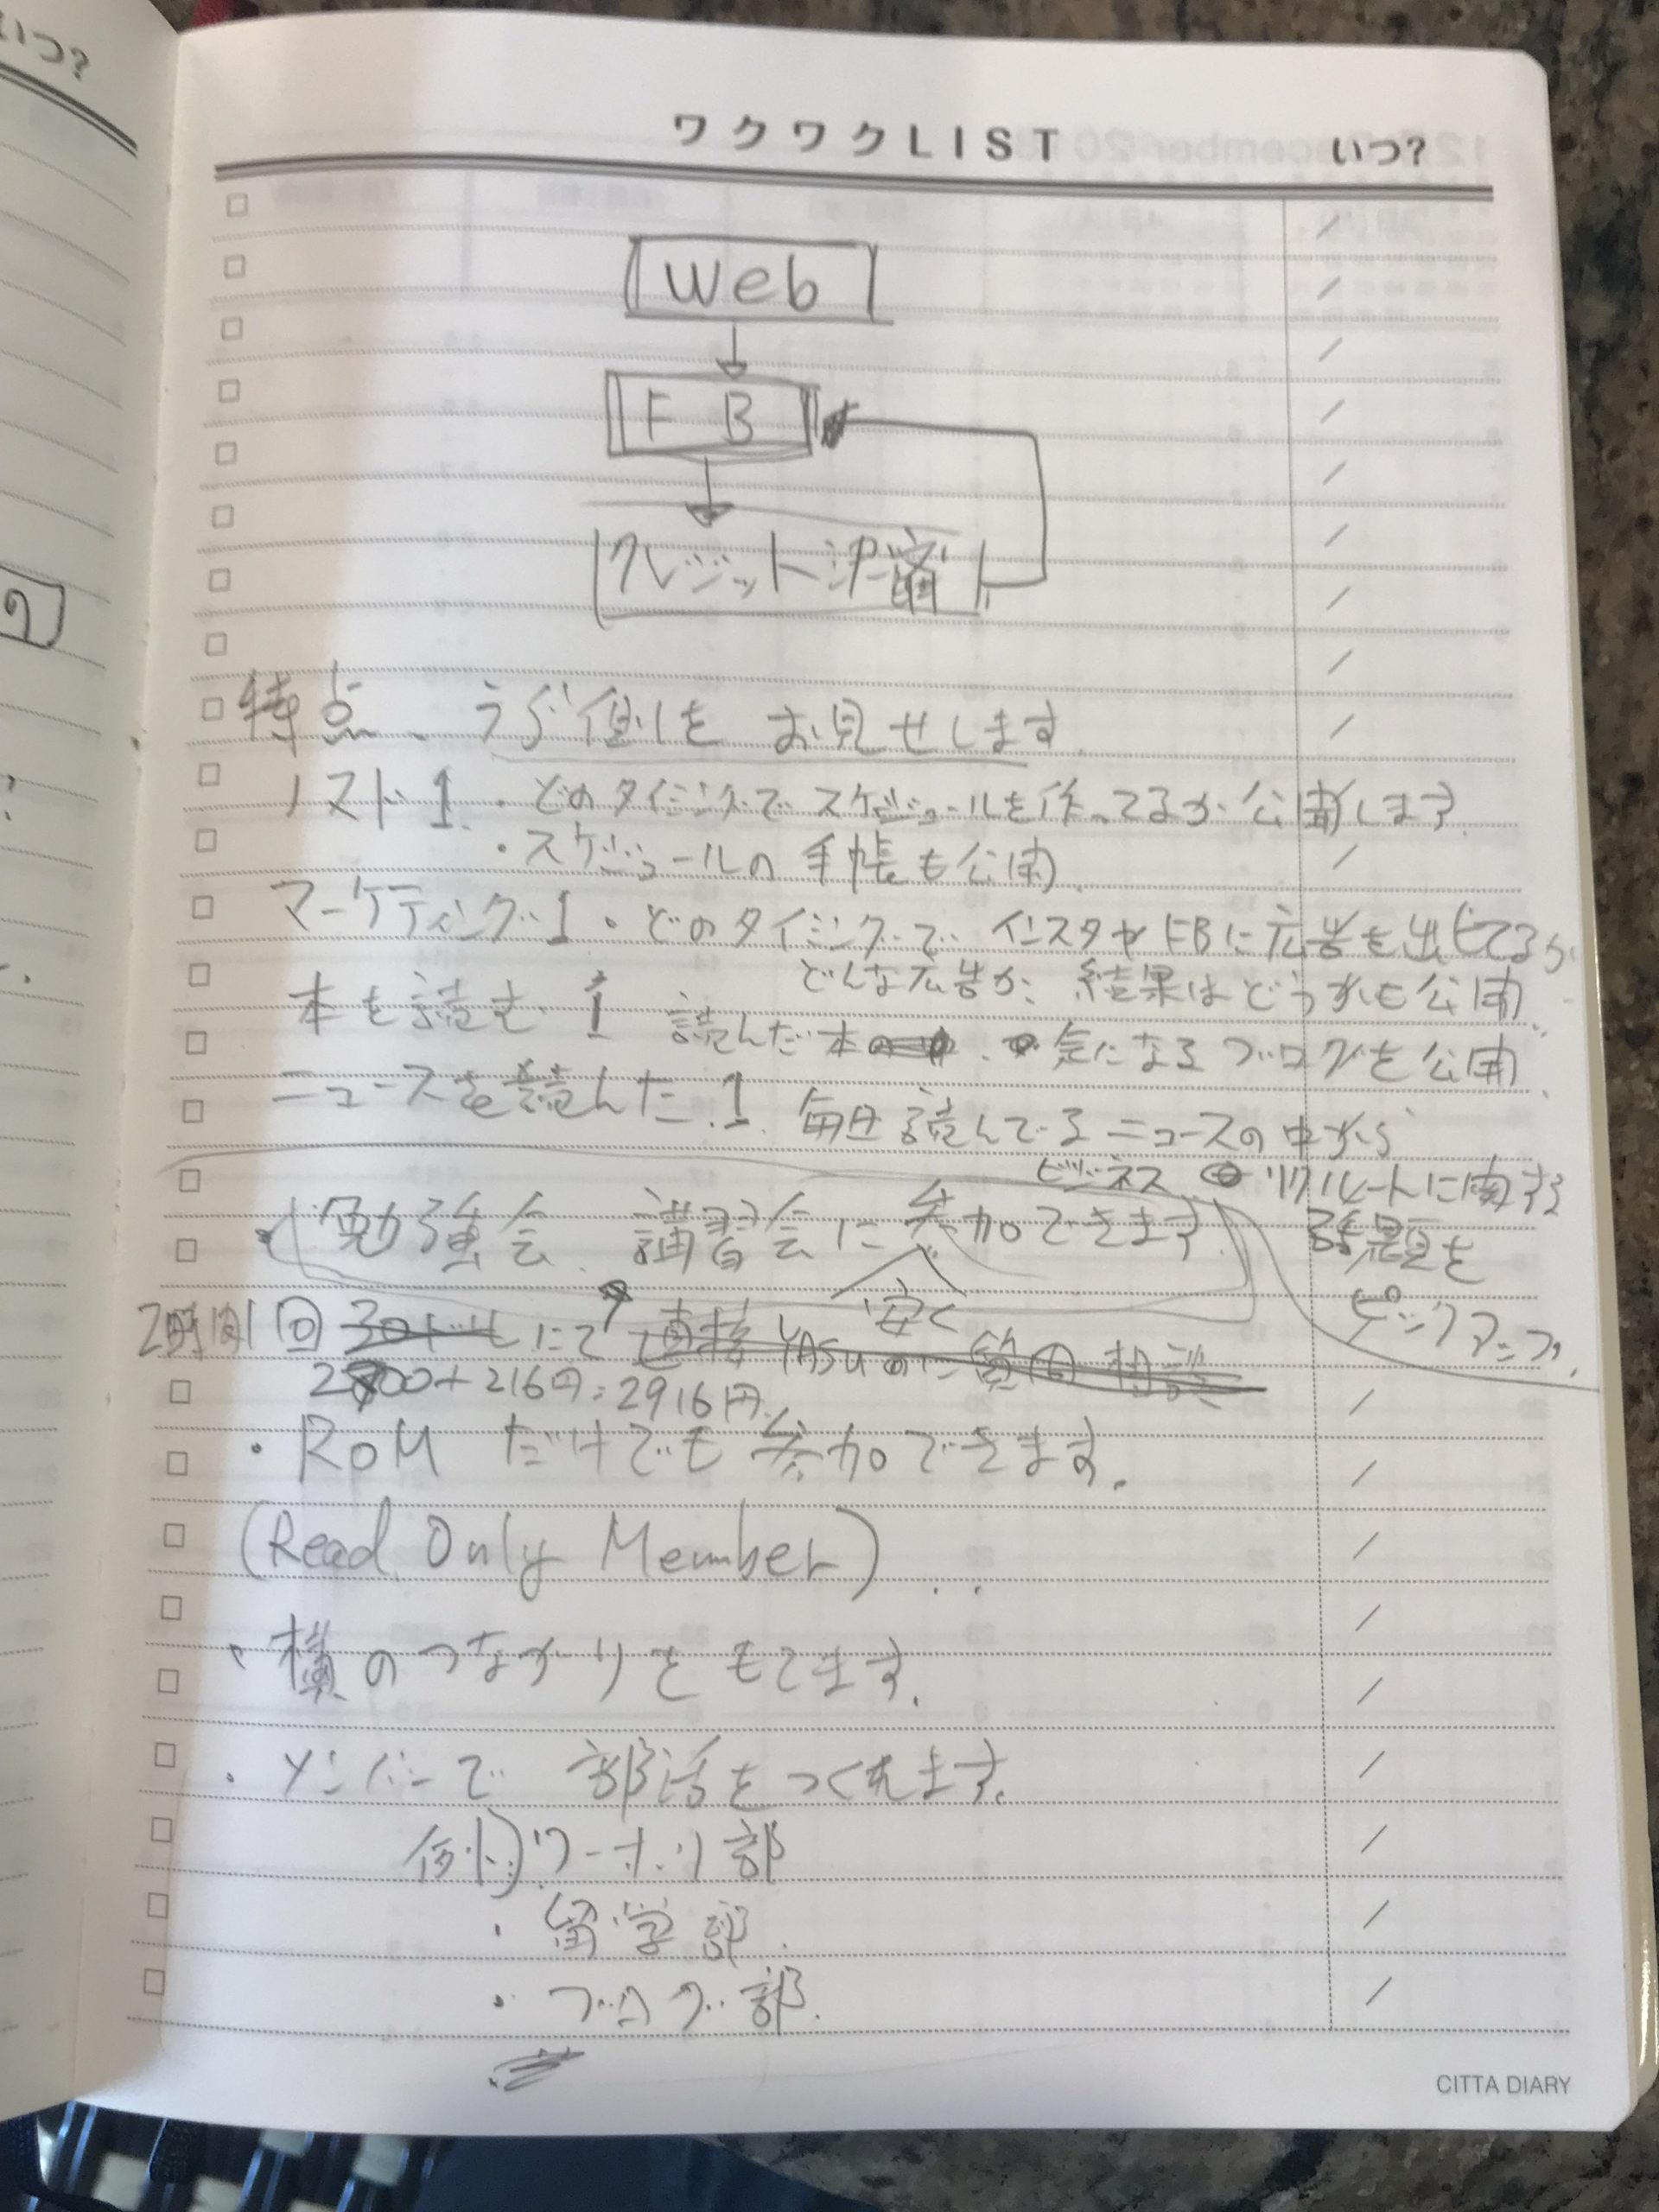 いつ?
ワクワクLIST いつ?
Web
FB
クレジット決済
特点、うら側をお見せします。
リスト1.・どのタイミングでスケジュールを作ってるか公開します。
・スケジュールの手帳も公開。
マーケティング1・どのタイミングでインスタやFBに広告を出してるか
どんな広告か、結果はどうかも公開。
本を読む1 読んだ本 気になるブログを公開。
ニュースを読んだ.1. 毎日読んでるニュースの中から
ビジネス リクルートに関する
話題を
ピックアップ.
・勉強会、講習会に参加できます。
安く
2時間1回 30ドルにて 直接YASUのに質問相談
2700+216円=2916円
・ROMだけでも参加できます。
(Read Only Member)
・横のつながりをもてます。
・メンバーで部活をつくれます。
例)ワーホリ部
・留学部.
・ブログ部.
CITTA DIARY